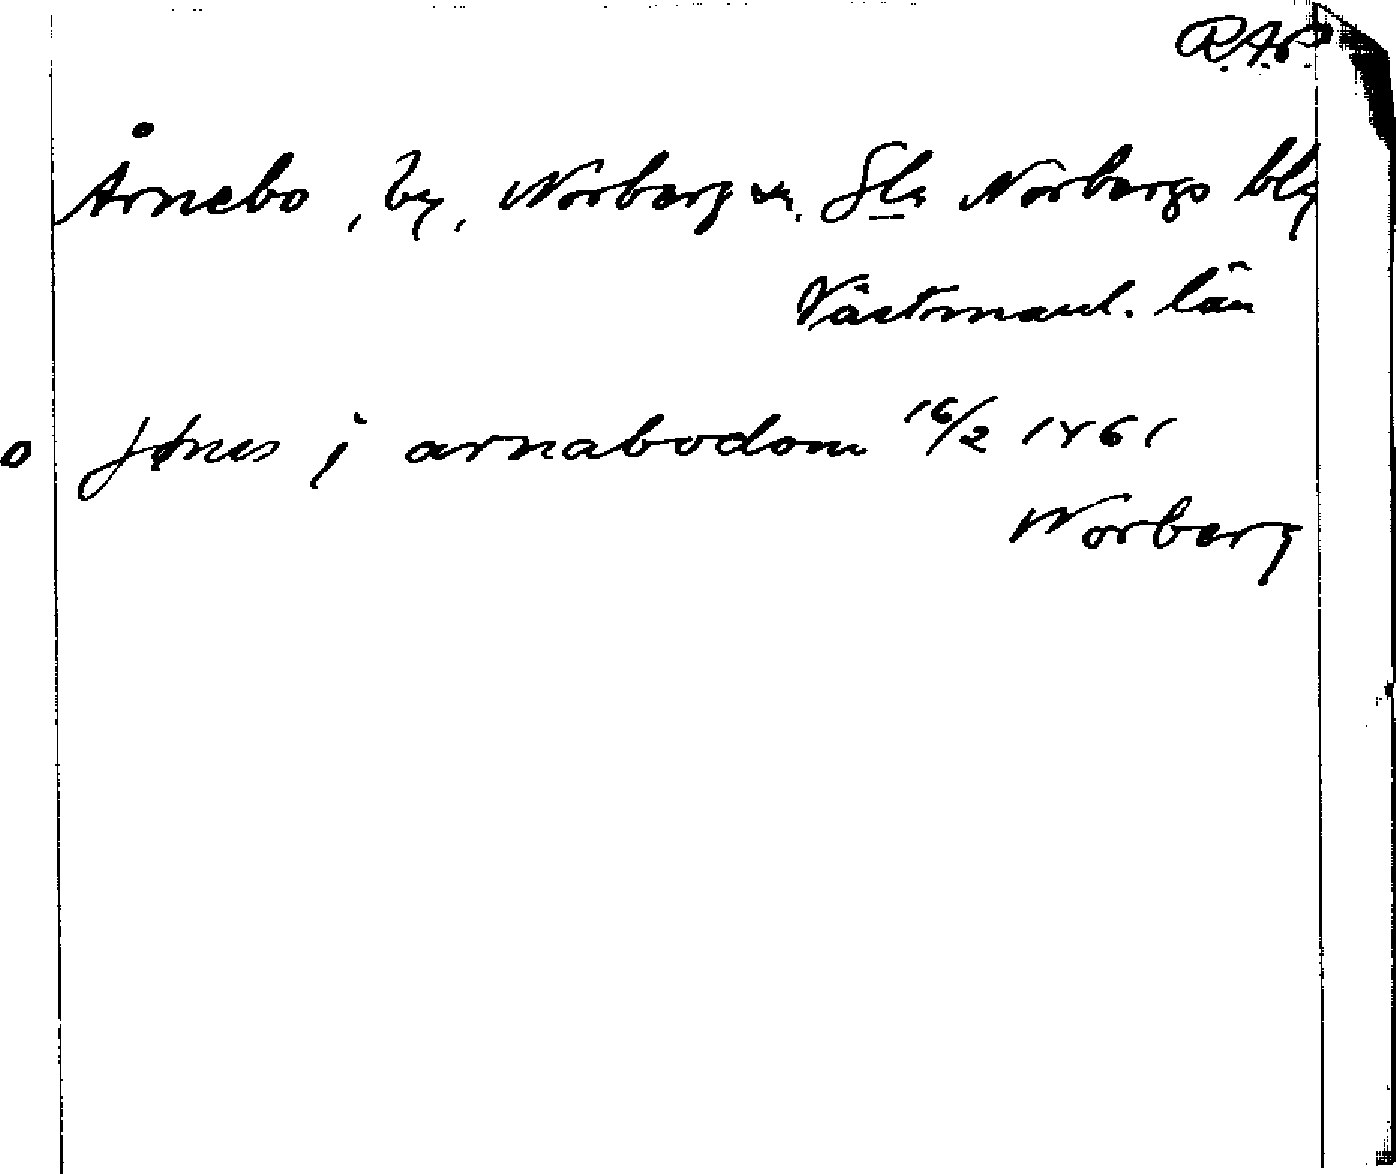 R.A.P.
Årnebo, by, Norberg sn. Gla Norbergs blg
Västmanl. län
o Jønes j arnabodom 16/2 1461
Norberg